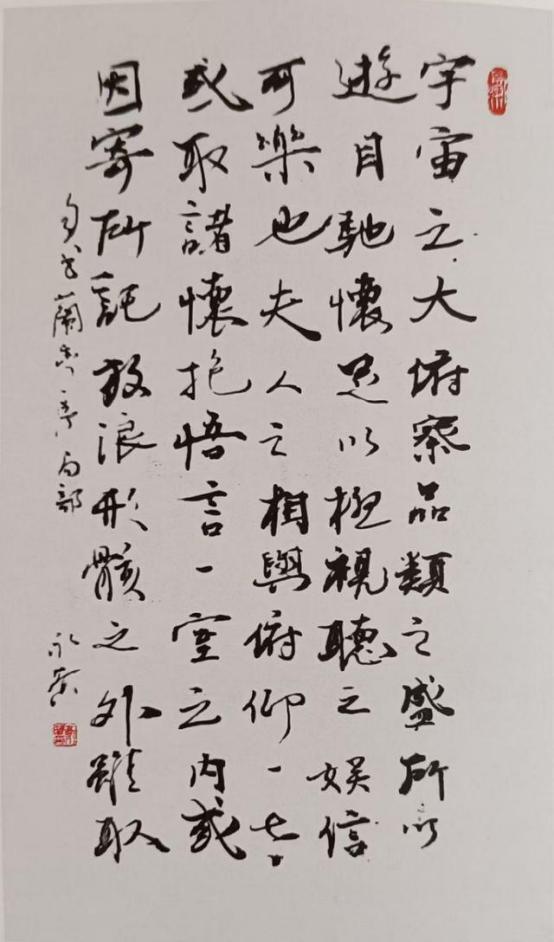 宇宙之大俯察品類之盛所以
遊目馳懷足以極視聽之娛信
可樂也夫人之相與俯仰一世
或取諸懷抱悟言一室之內或
因寄所託放浪形骸之外雖取
蘭亭局部
永